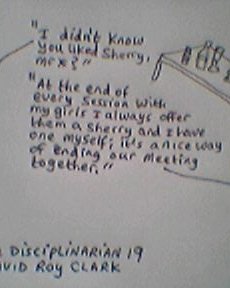 "I didn't know
you liked Sherry,
mr x?"
"At the end of
every session with
my girls I always offer
them a sherry and I have
one myself, it's a nice way
of ending our meeting
together."
DISCIPLINARIAN 19
VID ROY CLARK